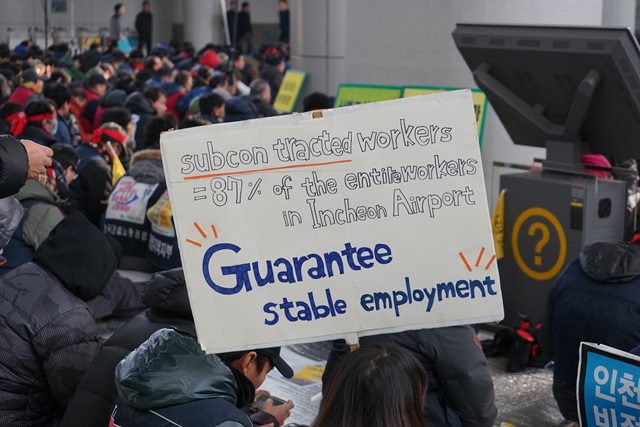 subcontracted workers
= 87% of the entire workers
in Incheon Airport
Guarantee
stable employment
?
인천
비정